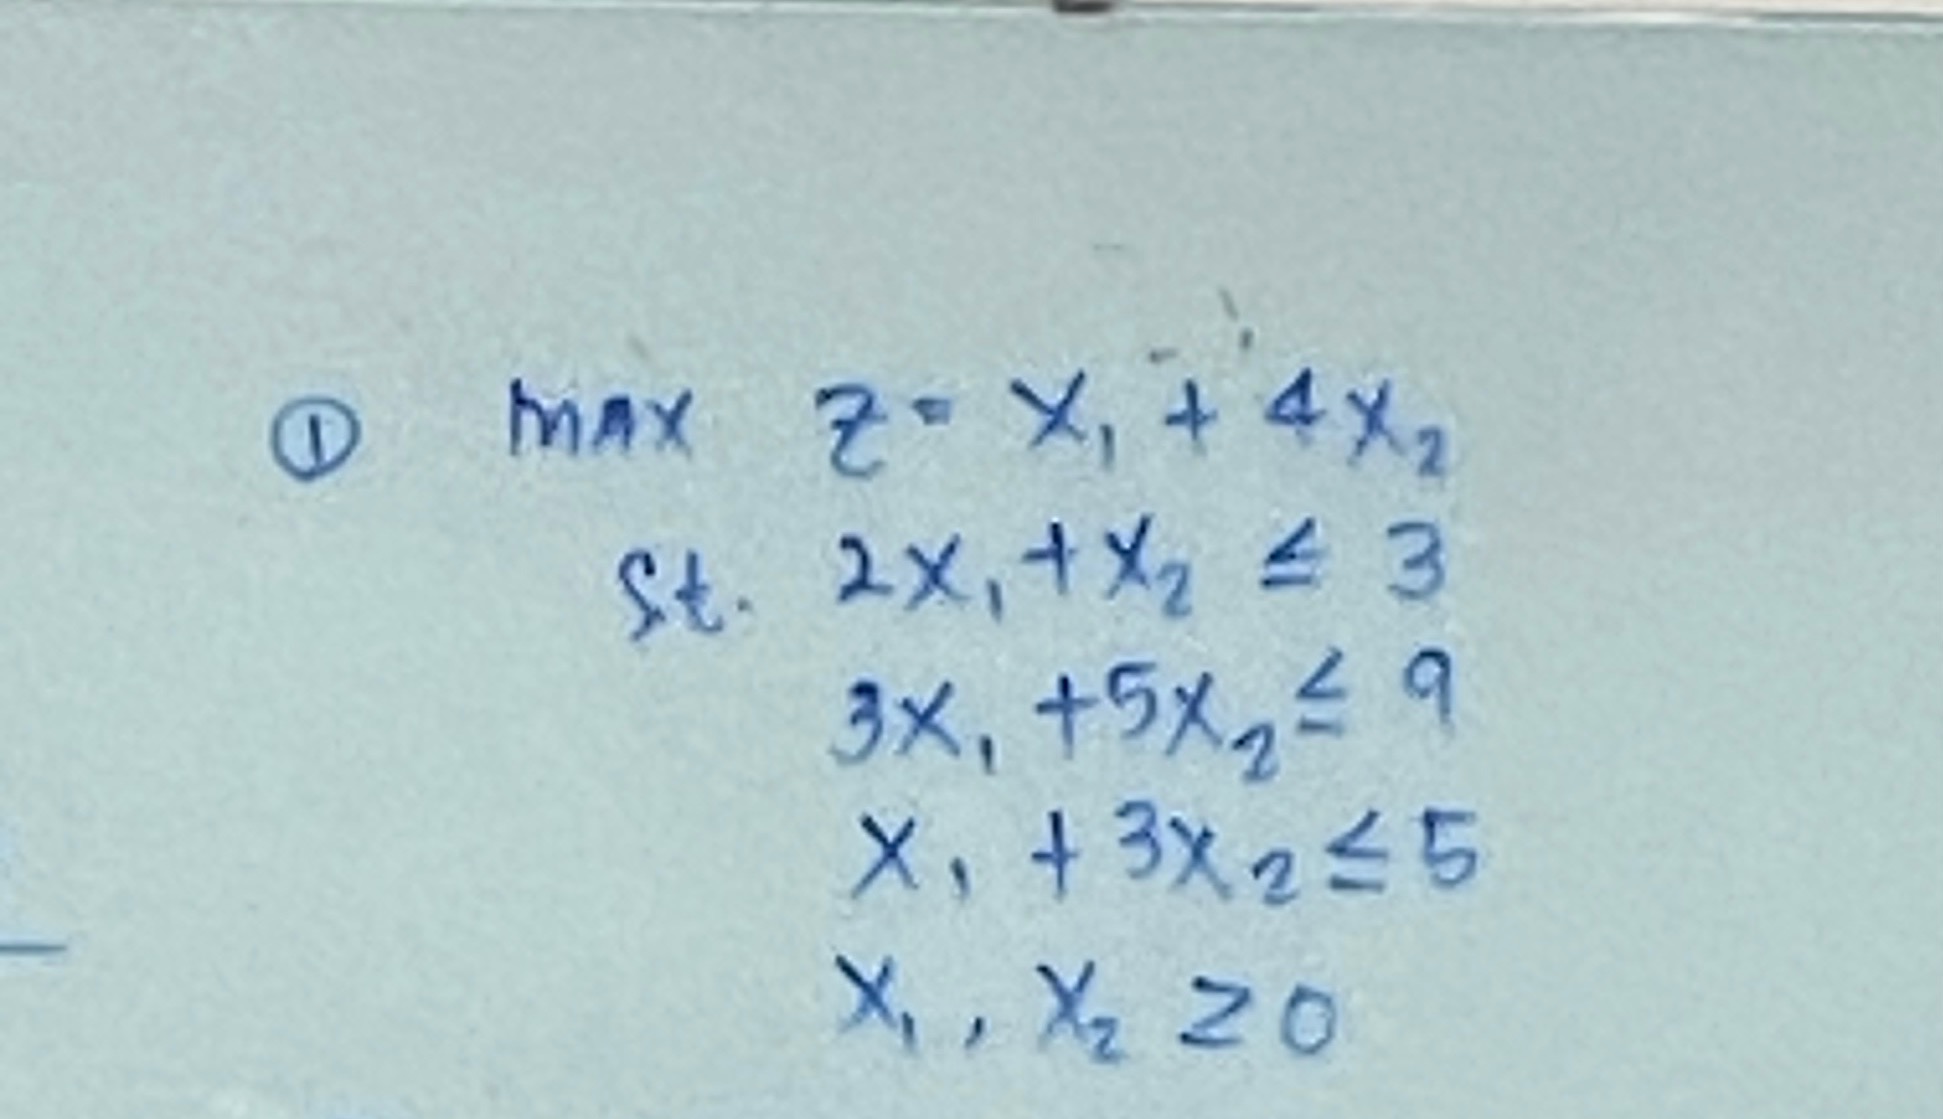 ① max z = x₁ + 4x₂
st. 2x₁ + x₂ ≤ 3
3x₁ + 5x₂ ≤ 9
x₁ + 3x₂ ≤ 5
x₁, x₂ ≥ 0